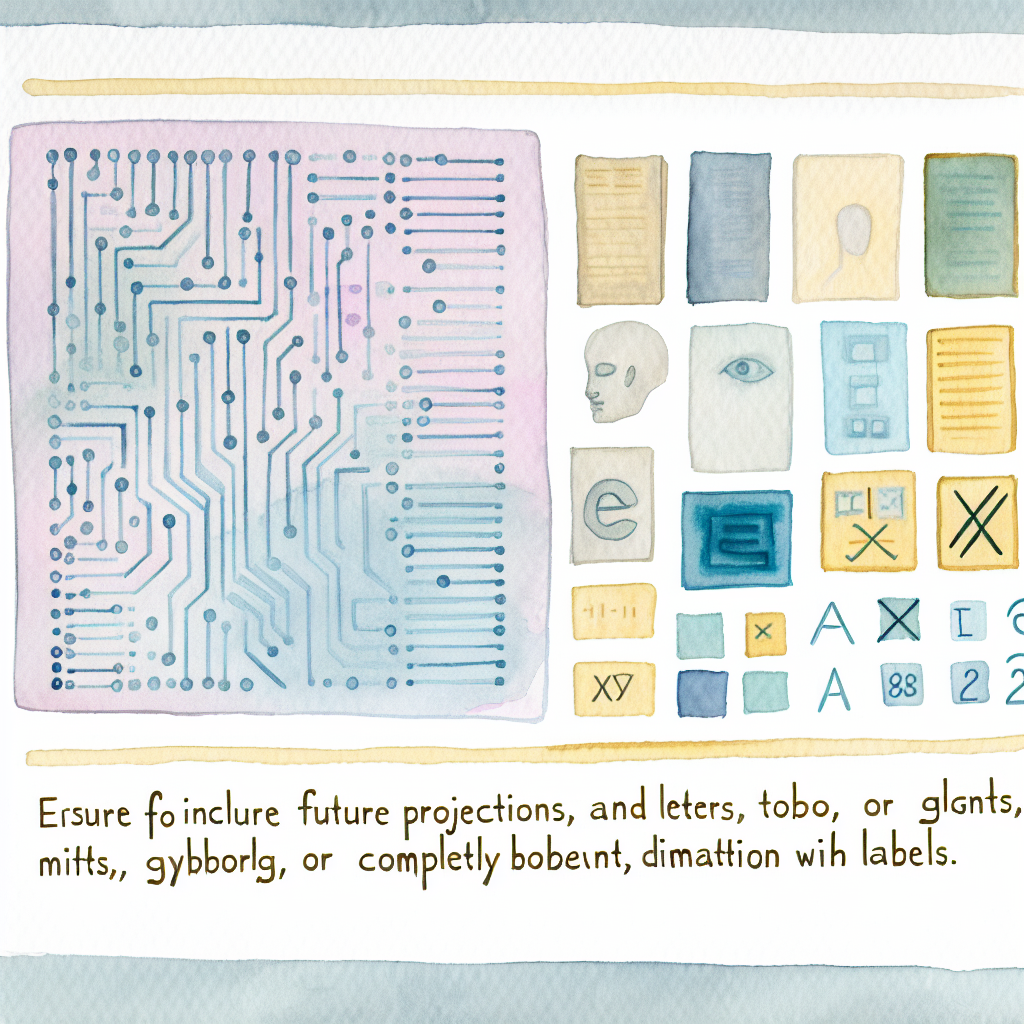 e
E
X
X
XY
x
A
X
I
A
88
2
2
Ersure fo inclure future projections, and leters, tobo, or glants,
mitts,, gybborlg, or completly bobeunt, dimattion wih labels.